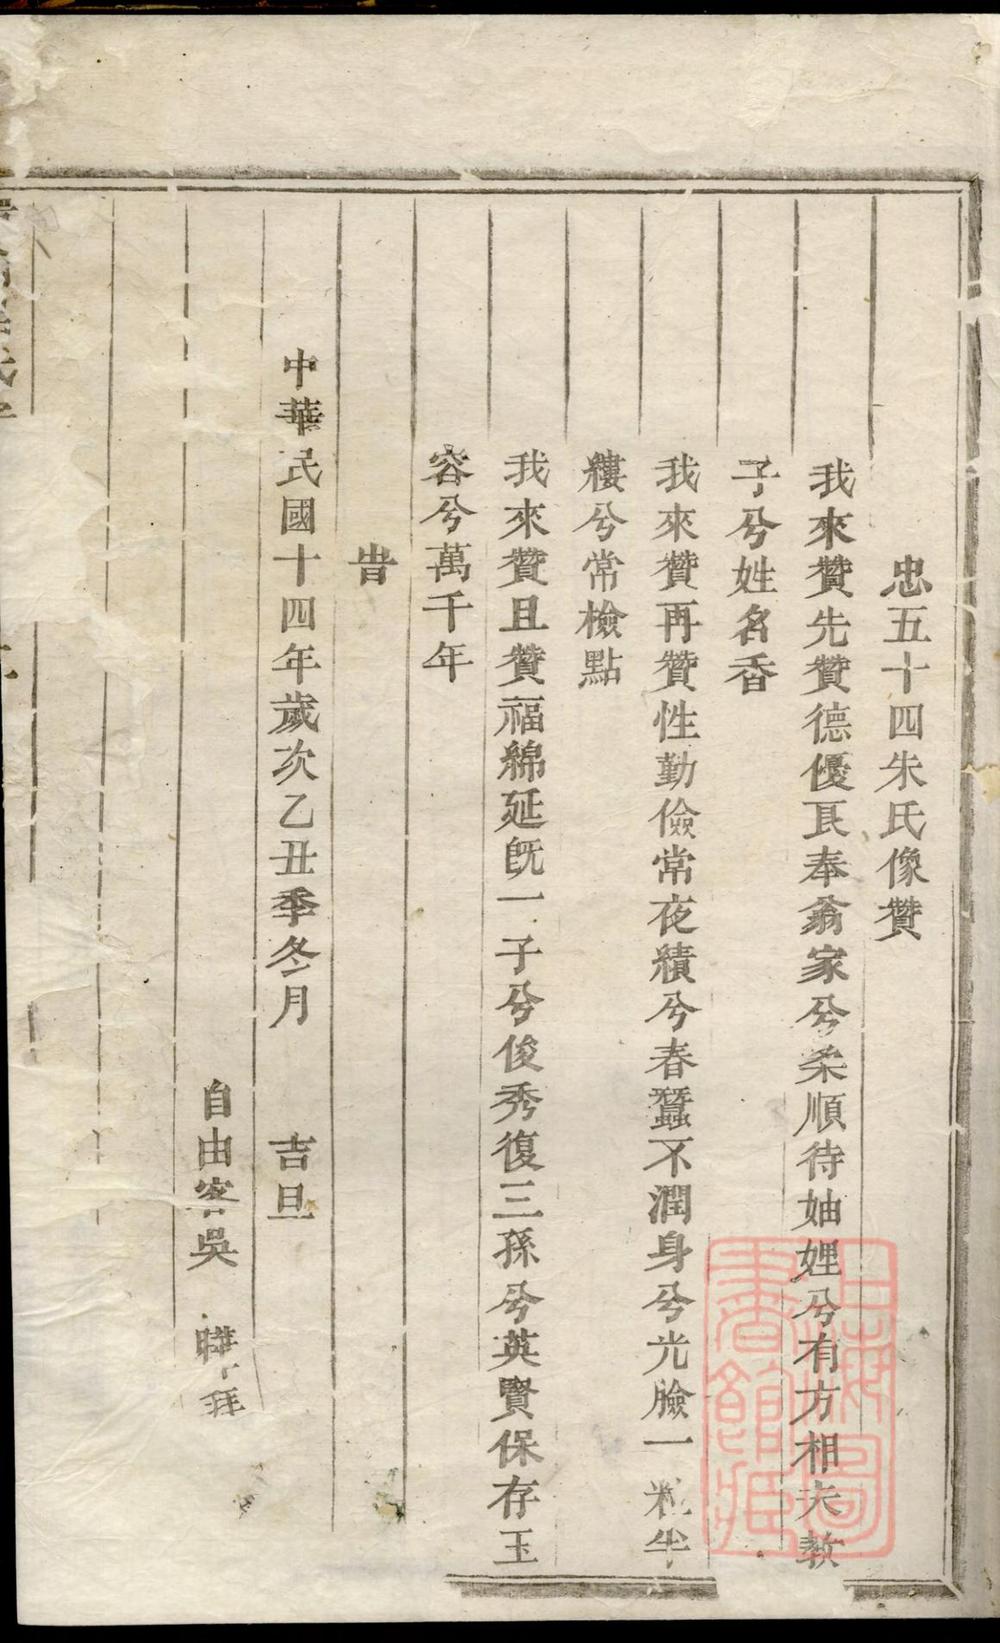 忠五十四朱氏像贊
我來贊先贊德優良奉翁家兮柔順待妯娌兮有方相夫教
子兮姓名香
我來贊再贊性勤儉常夜績兮春蠶不潤身兮光臉一粒半
縷兮常檢點
我來贊且贊福綿延旣一子兮俊秀復三孫兮英賢保存玉
容兮萬千年
旹
中華民國十四年歲次乙丑季冬月 吉旦
自由客吳 曄拜
上海圖書館藏